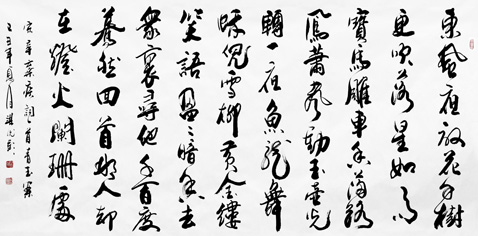 東風夜放花千樹
更吹落星如雨
寶馬雕車香滿路
鳳簫聲動玉壺光
轉一夜魚龍舞
蛾兒雪柳黃金縷
笑語盈盈暗香去
衆裏尋他千百度
驀然回首那人却
在燈火闌珊處
宋辛棄疾詞一首青玉案
丑年夏月